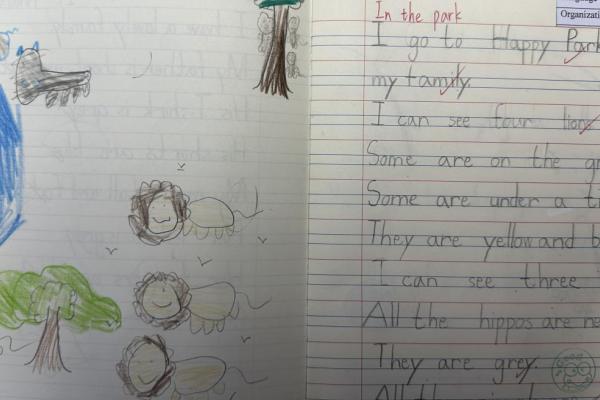 In the park
Organizati
I go to Happy Park
my family.
I can see four lion
Some are on the gr
Some are under a t
They are yellow and b
I can see three
All the hippos are ne
They are grey.